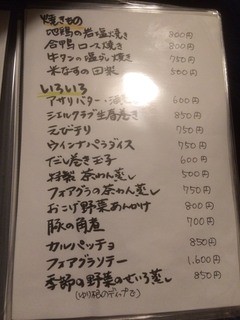 焼きもの
地鶏の岩塩焼き 800円
合鴨ロース焼き 800円
牛タンの塩焼き 750円
米なすの田楽 500円
いろいろ
アサリバター 600円
ソフトシェルクラブ生春巻き 850円
えびチリ 750円
ウインナパラダイス 750円
だし巻き玉子 600円
特製 茶わん蒸し 500円
フォアグラの茶わん蒸し 750円
おこげ野菜あんかけ 800円
豚の角煮 700円
カルパッチョ 850円
フォアグラソテー 1,600円
季節の野菜のせいろ蒸し 850円